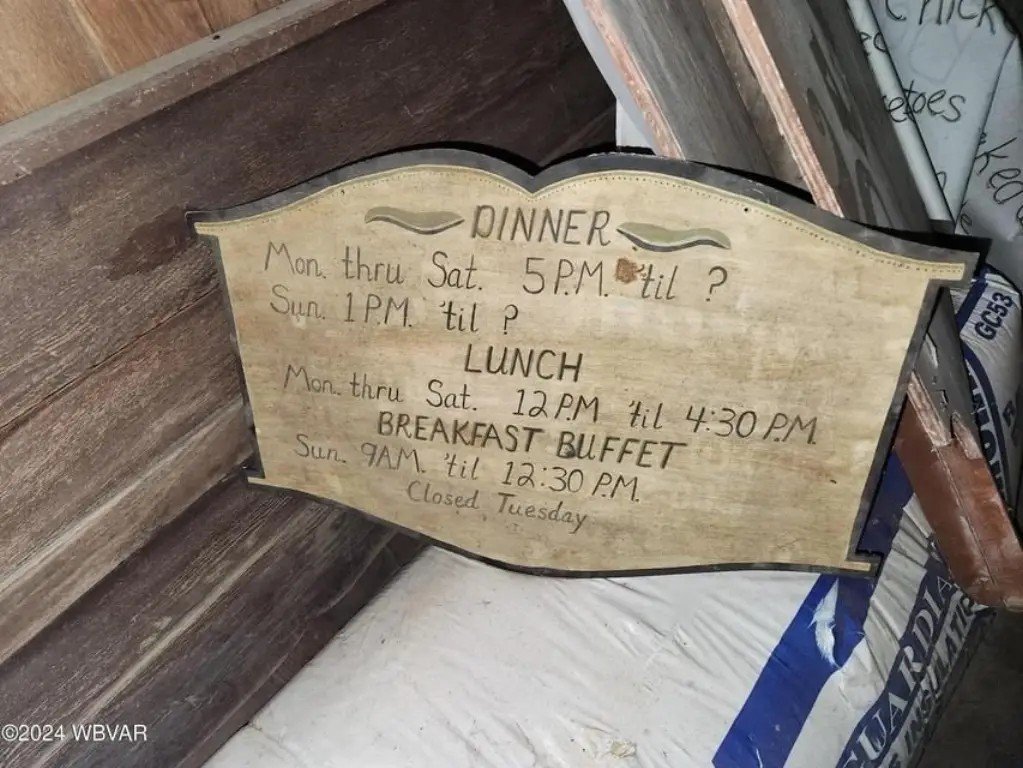 DINNER
Mon. thru Sat. 5 P.M. 'til ?
Sun. 1 P.M. 'til ?
LUNCH
Mon. thru Sat. 12 P.M 'til 4:30 P.M.
BREAKFAST BUFFET
Sun. 9AM. 'til 12:30 P.M.
Closed Tuesday
GC53
©2024 WBVAR